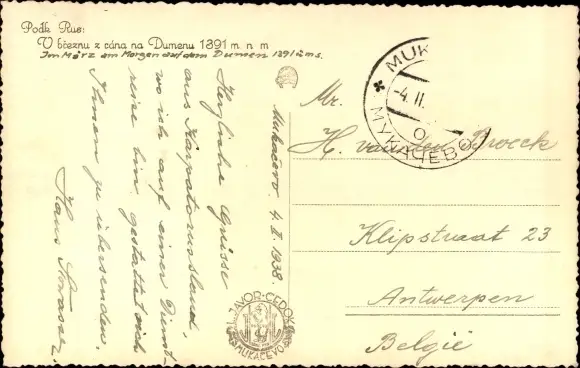 Podk. Rus:
V březnu z rána na Dumenu 1391 m. n. m
Im März am Morgen auf dem Dumen 1391 ü.m.s.
Mukačevo 4. II. 1938.
Herzliche Grüsse
aus Karpatorussland,
wo ich auf einer Dienst-
reise bin gestattet sich
Ihnen zu übersenden.
Hans
MUK
-4. II.
О
МУКАЧЕВО
Mr.
H. van den Broeck
Klipstraat 23
Antwerpen
België
JAVOR-ČEDOK
MUKAČEVO